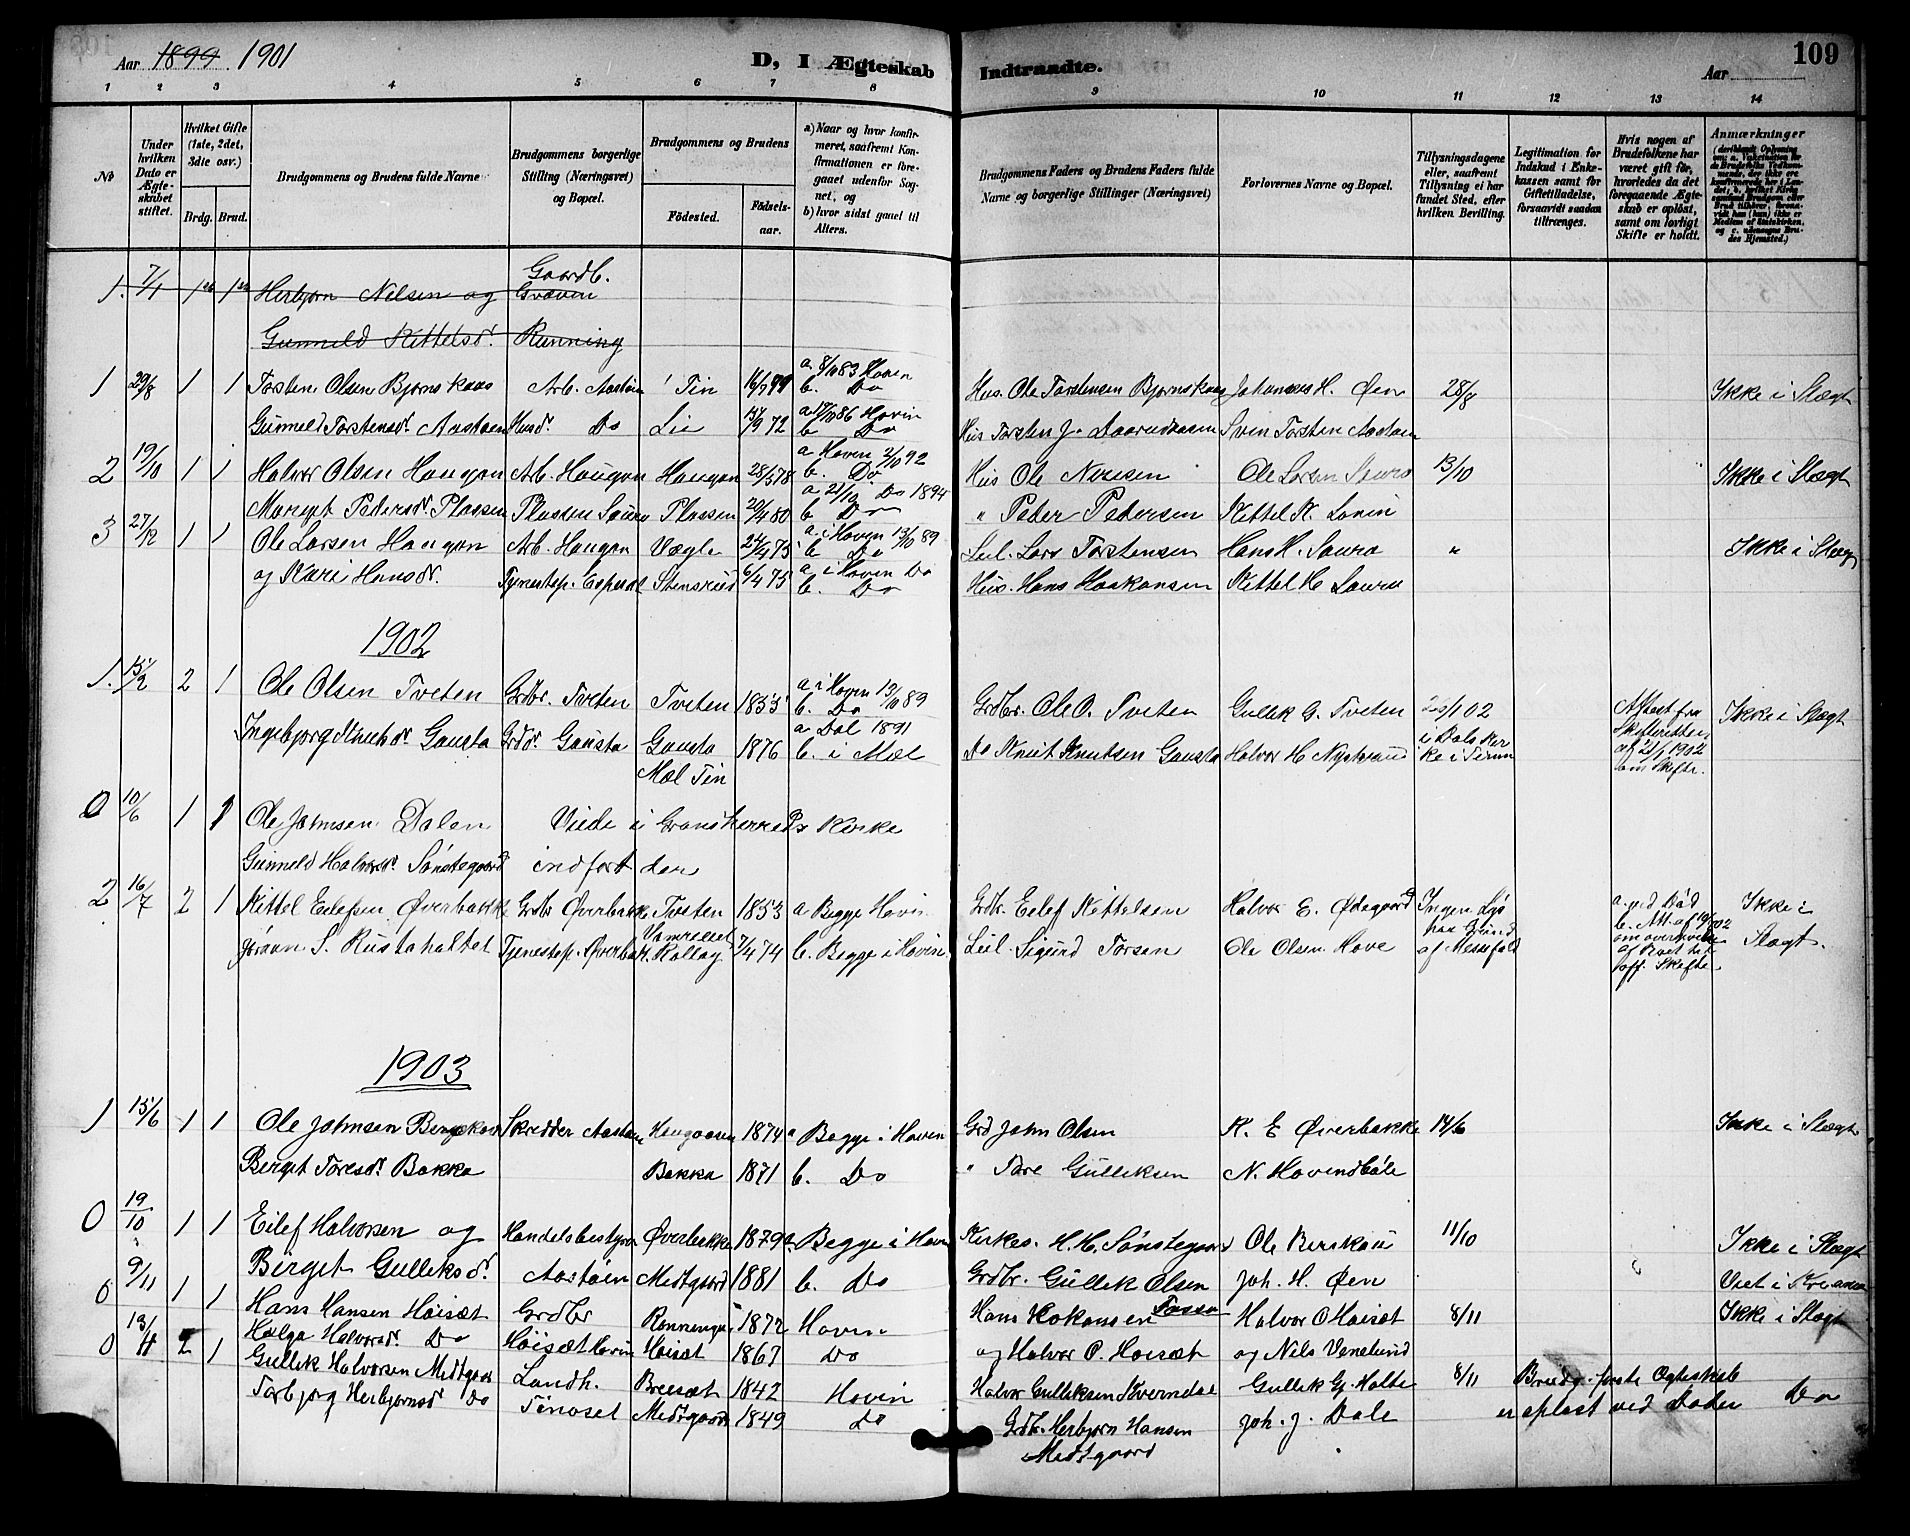 Aar 1899 1901
D, I Ægteskab Indtraadte.
109
Aar
1 2 3 4 5 6 7 8 9 10 11 12 13 14
No
Under hvilken Dato er Ægteskabet stiftet.
Hvilket Gifte (1ste, 2det, 3die osv.)
Brdg. Brud.
Brudgommens og Brudens fulde Navne
Brudgommens borgerlige Stilling (Næringsvei) og Bopæl.
Brudgommens og Brudens
Fødested. Fødselsaar.
a) Naar og hvor konfirmeret, saafremt Konfirmationen er foregaaet udenfor Sognet, og
b) hvor sidst gaaet til Alters.
Brudgommens Faders og Brudens Faders fulde Navne og borgerlige Stillinger (Næringsvei)
Forlovernes Navne og Bopæl.
Tillysningsdagene eller, saafremt Tillysning ei har fundet Sted, efter hvilken Bevilling.
Legitimation for Indskud i Enkekassen samt for Giftetilladelse, forsaavidt saadan tiltrænges.
Hvis nogen af Brudefolkene har været gift før, hvorledes da det foregaaende Ægteskab er opløst, samt om lovligt Skifte er holdt.
Anmærkninger
1. 7/1 1ste 1ste Herbjørn Nilsen og Gaardb. Graven
Gunneld Kittelsd. Running
1 29/8 1 1 Torsten Olsen Bjørnskaas Arb. Aastøen Tin a 8/10 83 Hovin Hus. Ole Torstensen Bjørnskaas Johannes H. Øen 28/8 Ikke i Slægt
Gunneld Torstensd. Aastøen Husd. Do Lie 17/9 72 a 17/10 86 Hovin b Do Hus Torsten J. Daarudaasen Svein Torsten Aastøen
2 19/10 1 1 Halvor Olsen Haugan Arb. Haugan Haugan 28/5 78 a Hovin 2/10 92 b. Do Hus Ole Nirisen Ole Larsen Saura 13/10 Ikke i Slægt
Marget Pedersd. Plassen Plassen Saura Plassen 20/4 80 a 21/10 Do 1894 b Do " Peder Pedersen Kittel K. Lonin
3 27/12 1 1 Ole Larsen Haugan Arb. Haugan Vægli 24/4 75 a i Hovin 13/10 89 b Do Leil. Lars Torstensen Hans K. Saura " Ikke i Slægt
og Kari Hansd. Tjenestep. Stensrud 6/4 75 a i Hovin Do b. Do Hus. Hans Haakansen Kittel H Saura
1902
1. 15/2 2 1 Ole Olsen Tveten Grdbr. Tveten Tveten 1855 a i Hovin 13/10 89 b. Do Grdbr. Ole O. Tveten Gullek G. Tveten 26/1 02 Attest fra Ikke i Slægt
Ingebjørg Knutsdr. Gausta Grdd. Gausta Gausta 1876 a Dal 1891 b. i Mæl Do Knut Knutsen Gausta Halvor H Nystrand i Dals Kirke i Tinn Skifteretten af 21/1 1902 om Skifte.
Mæl Tin
0 10/6 1 1 Ole Johnsen Dalen Viede i Gransherreds Kirke
Gunneld Halvorsd. Sønstegaard indført der
2 16/7 2 1 Kittel Eilefsen Øverbakke Grdbr Øverbakke Tveten 1853 a Begge Hovin Grdb. Eilef Kittelsen Halvor E. Ødegaard Ingen Lys a. ved Død Ikke i
Jøran S. Rustahaldet Tjenestep. Øverbak. Rollag 7/4 74 b. Begge i Hovin Leil. Sigurd Torsen Ole Olsen Hove paa Grund af Messefald b. Att. af Slægt.
off. Skifte
1903
1 15/6 1 1 Ole Johnsen Bergskaas Skredder Aastøen Haugaasen 1874 a Begge i Hovin Grd John Olsen K. E Øverbakke 14/6 Ikke i Slægt
Berget Toresd. Bakka Bakka 1871 b. Do " Tore Gulleksen N. Hovindbøle
0 19/10 1 1 Eilef Halvorsen og Handelsbestyrer Øverbekke 1879 a. Begge i Hovin Kirkes. H. H. Sønstegaard Ole Berskaas 11/10 Ikke i Slægt
Birget Gulleksd. Aastøen Midtgaard 1881 b. Do Grdbr. Gullek Olsen Joh. H. Øen Viet i
0 9/11 1 1 Hans Hansen Høisæt Grdbr Rønningen 1872 Hovin Hans Hokansen Fosso Halvor O Høisæt 8/11 Ikke i Slægt
Hælga Halvorsd. Do Høisæt Hovin Høisæt 1867 Do og Halvor P. Høisæt og Nils Venelund
0 13/11 2 1 Gullik Halvorsen Midtgaard Landh. Breisæt 1842 Hovin Halvor Gulleksen Kverndal Gullek Gj. Holte 8/11 Brudg. første Ægteskab
Torbjørg Herbjørnsd Do Tinoset Midtgaard 1849 Do Grdb. Herbjørn Hansen Joh. J. Dale er opløst ved Døden Do
Midtgaard